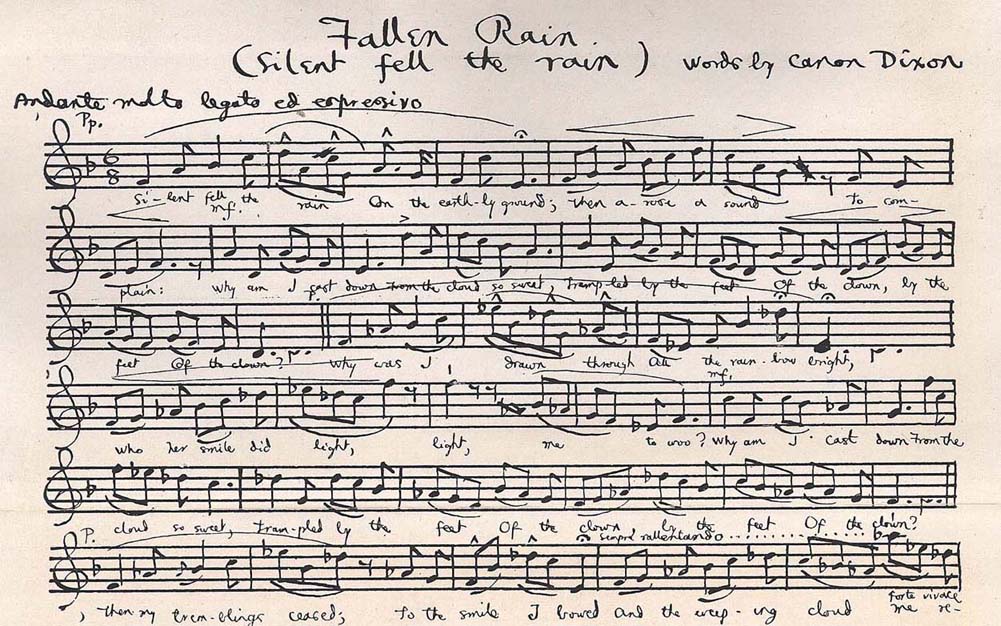 Fallen Rain
(Silent fell the rain) words by Canon Dixon
Andante molto legato ed espressivo
Pp.
6 8
Si-lent fell the rain On the earth-ly ground; Then a-rose a sound To com-
mf.
plain: Why am I cast down From the cloud so sweet, Tramp-led by the feet Of the clown, by the
feet Of the clown? Why was I drawn through All the rain-bow bright,
mf.
Who her smile did light, light, me to woo? Why am I cast down From the
P. cloud so sweet, tram-pled by the feet Of the clown, by the feet Of the clown?
sempre rallentando
forte vivace
, Then my trem-blings ceased; To the smile I bowed And the weep-ing cloud me re-